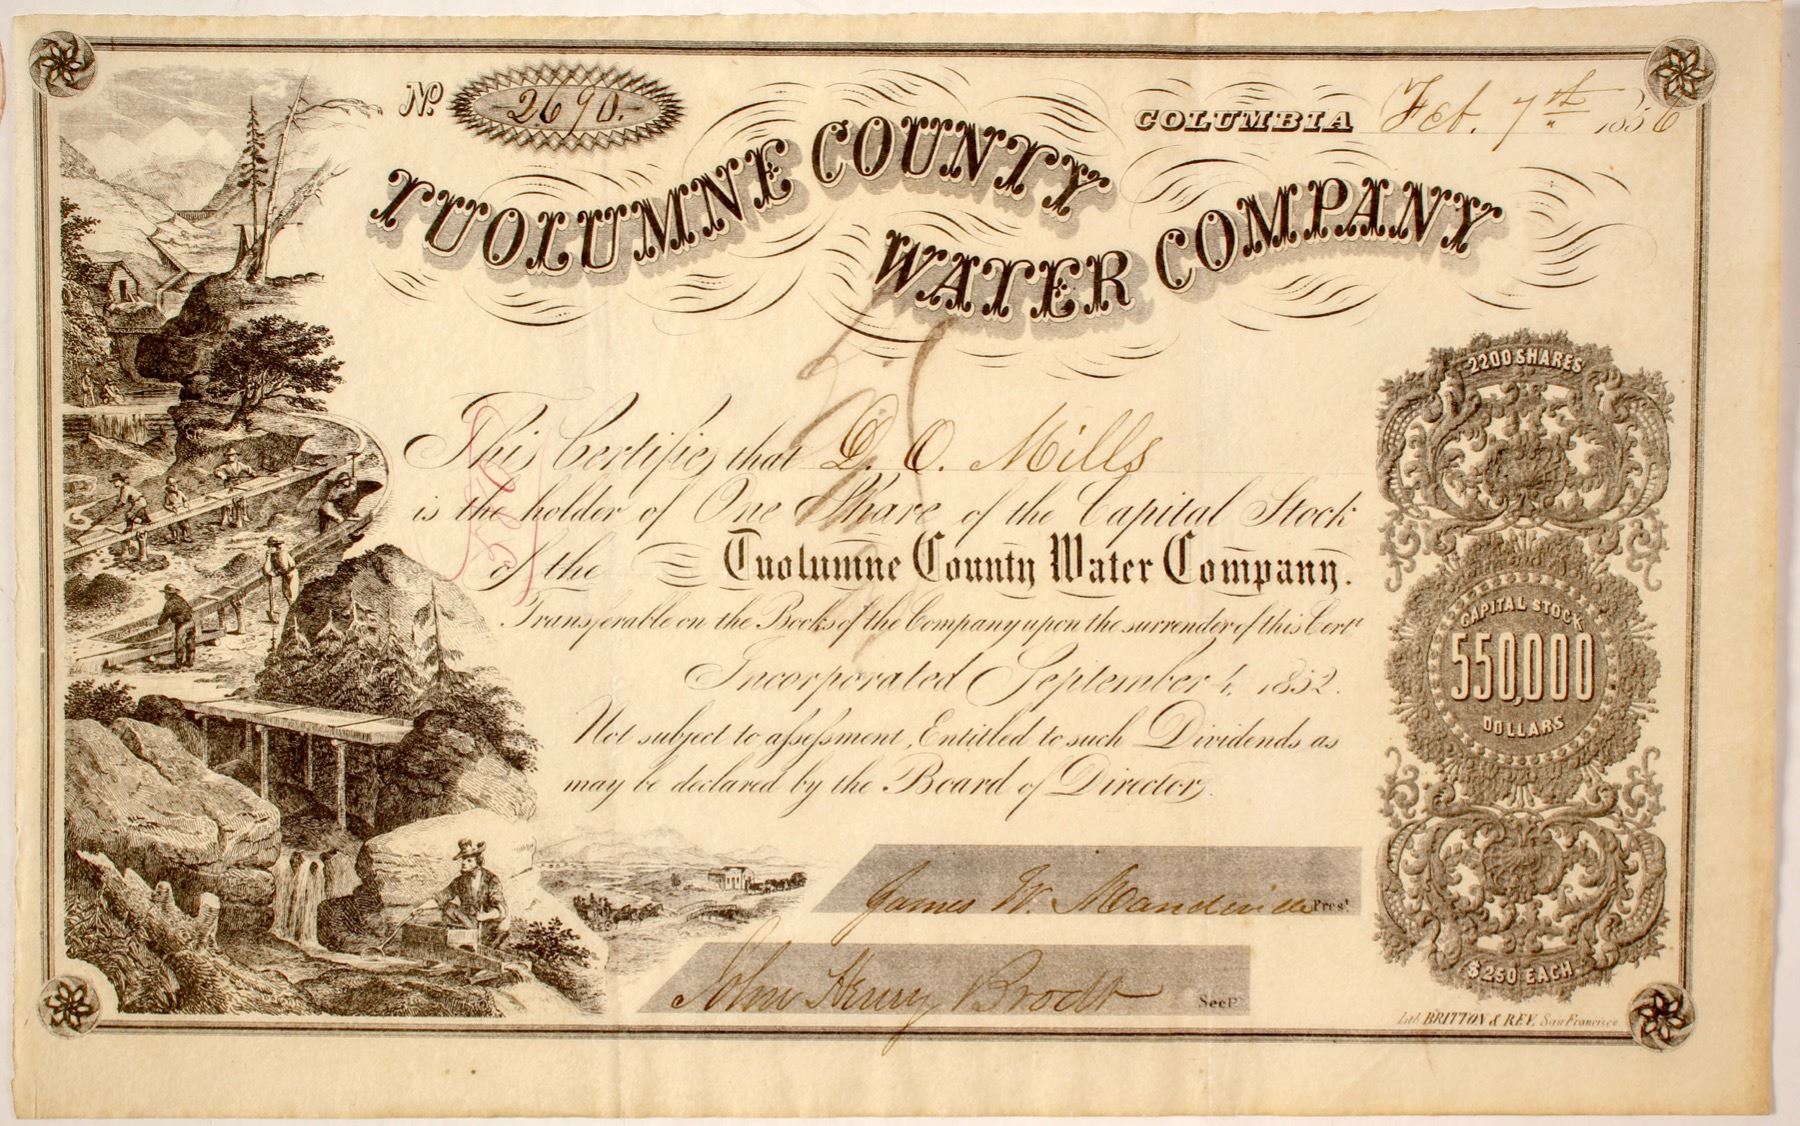 No 2690.
COLUMBIA Feb. 7th 1856
TUOLUMNE COUNTY
WATER COMPANY
This Certifies that D. O. Mills
is the holder of One Share of the Capital Stock
of the Tuolumne County Water Company.
Transferable on the Books of the Company upon the surrender of this Certe
Incorporated September 4, 1852.
Not subject to assessment, Entitled to such Dividends as
may be declared by the Board of Directors.
2200 SHARES
CAPITAL STOCK
550,000
DOLLARS
$250 EACH
James W. Mandeville Prest.
John Henry Brodt Secy.
Lith. BRITTON & REY. San Francisco